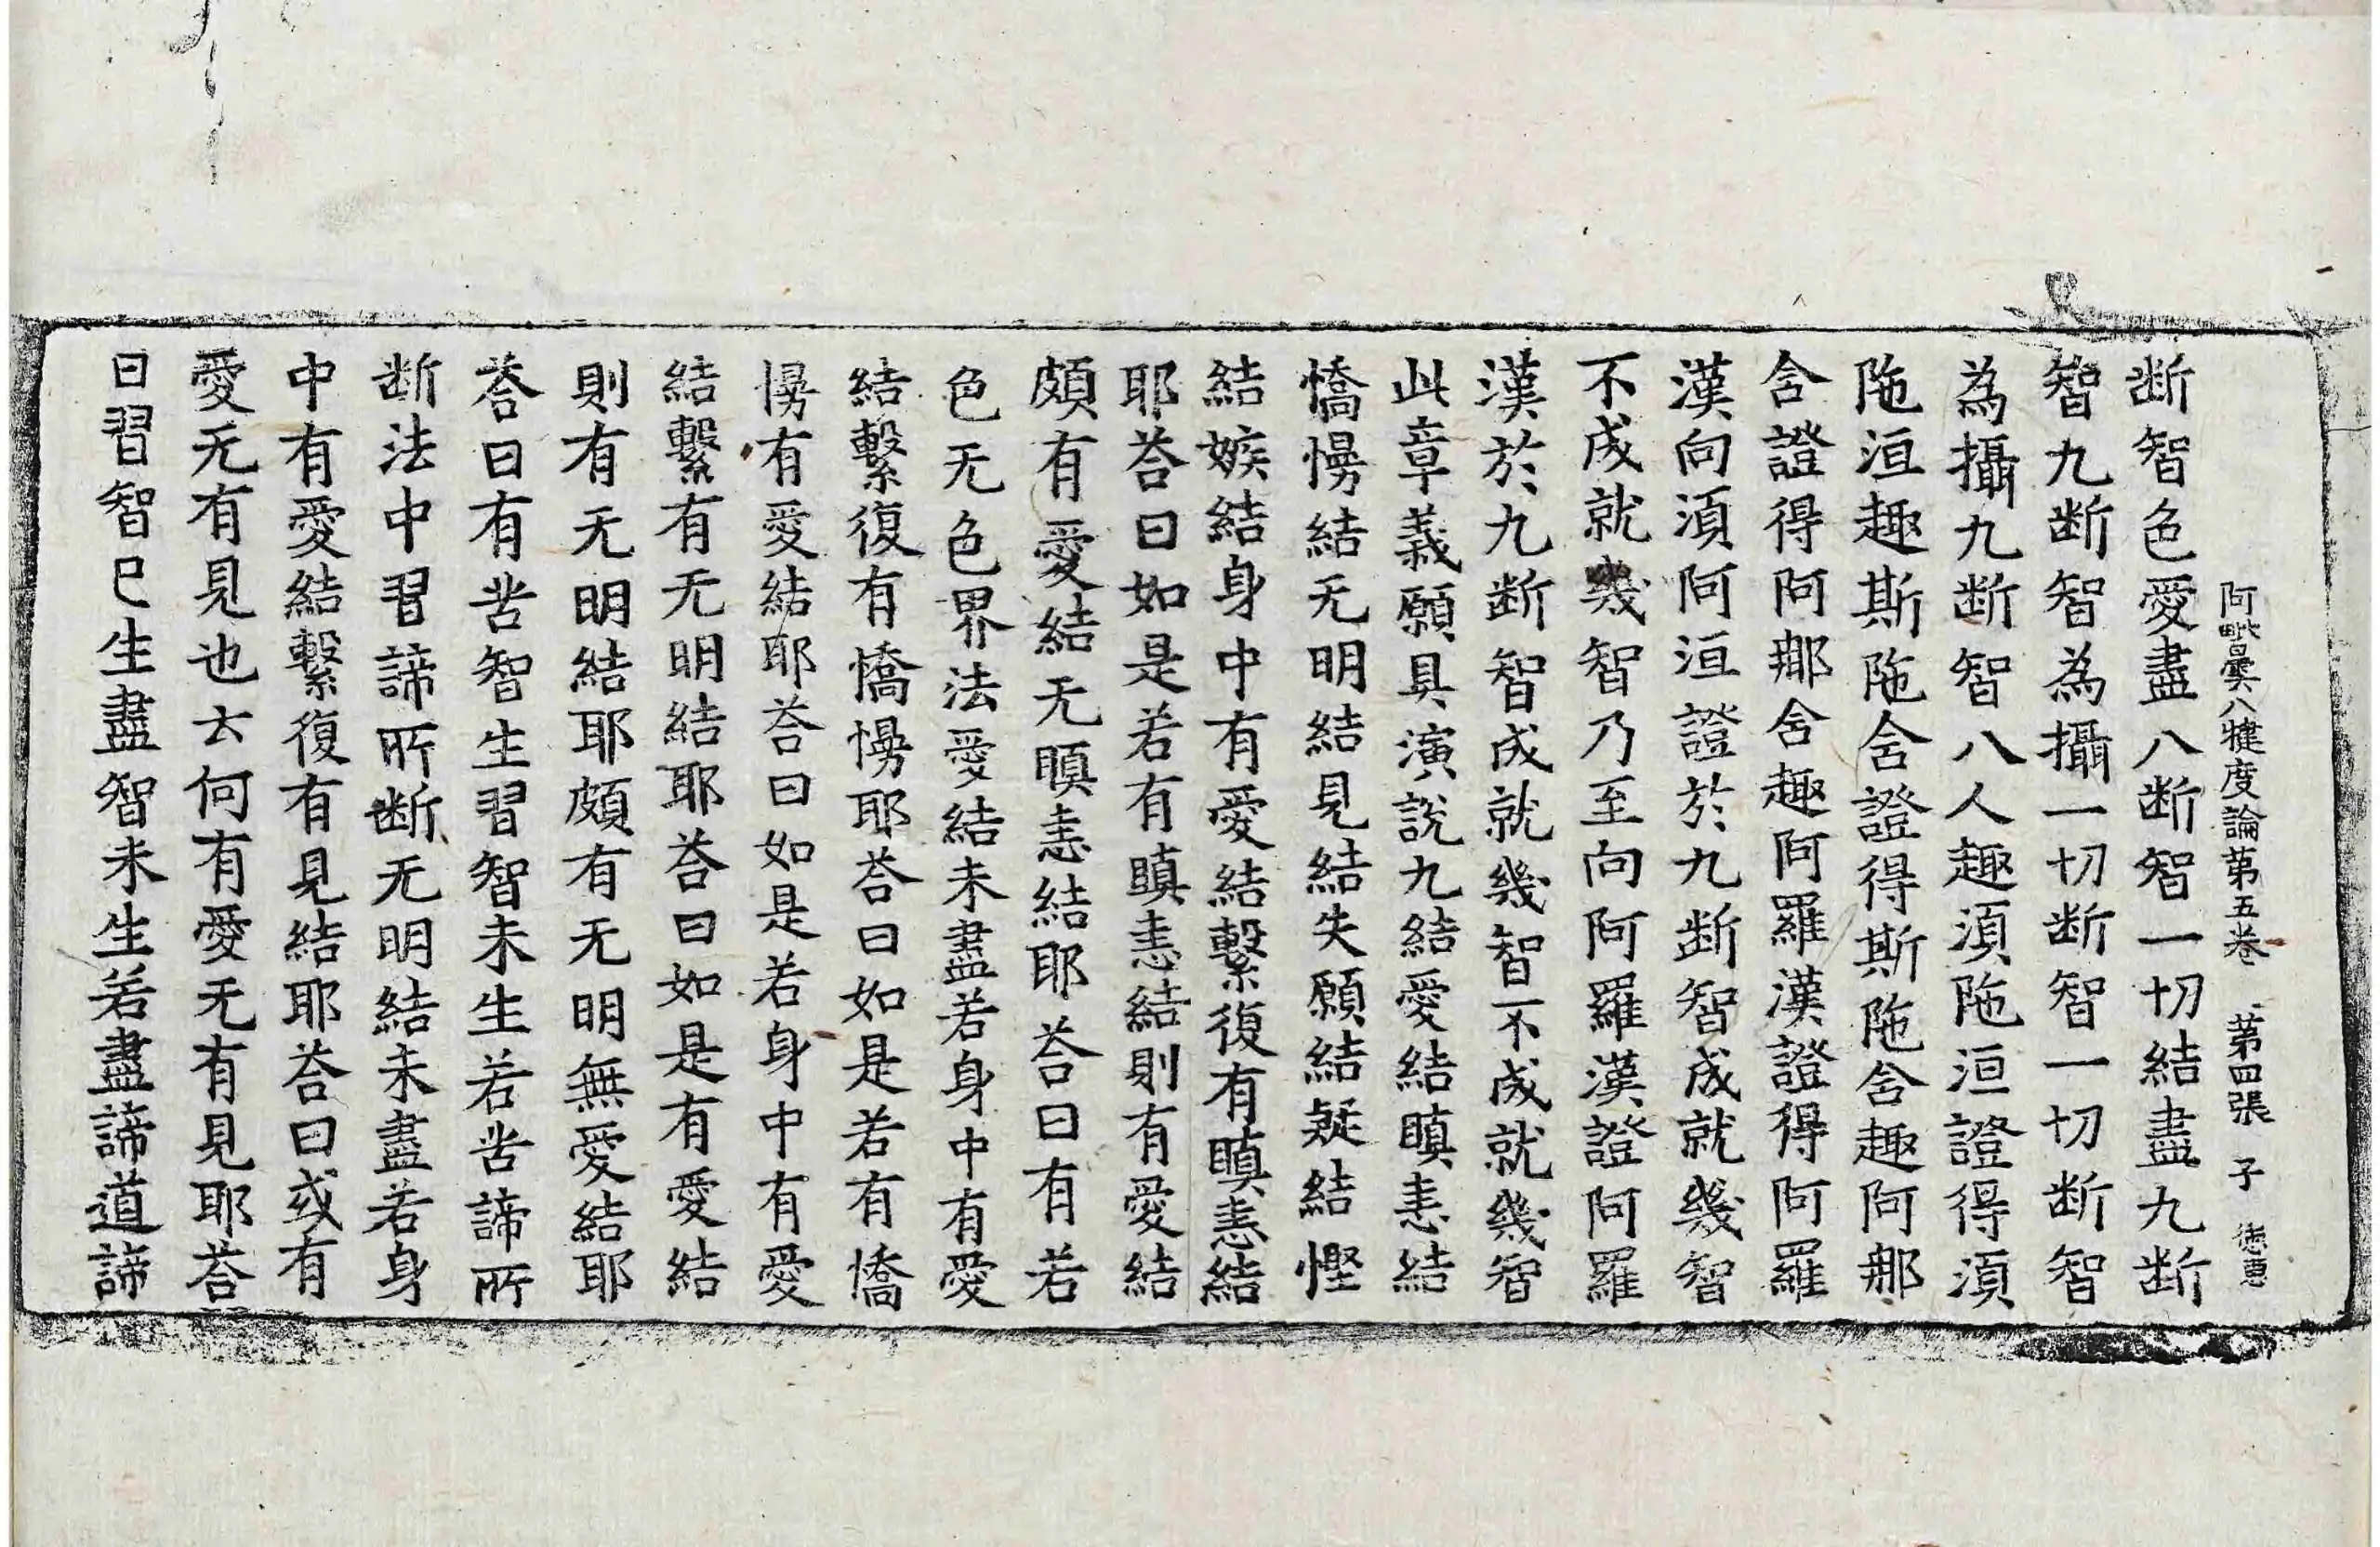 阿毗曇八犍度論苐五卷 苐四張 子
断智色愛盡八断智一切結盡九断
智九断智為攝一切断智一切断智
為攝九断智八人趣湏陁洹證得湏
陁洹趣斯陁含證得斯陁含趣阿那
含證得阿那含趣阿羅漢證得阿羅
漢向湏陁洹證於九断智成就幾智
不成就幾智乃至向阿羅漢證阿羅
漢於九断智成就幾智不成就幾智
此章義願具演說九結愛結瞋恚結
憍慢結无明結見結失願結疑結慳
結嫉結身中有愛結繫復有瞋恚結
耶荅曰如是若有瞋恚結則有愛結
頗有愛結无瞋恚結耶荅曰有若
色无色界法愛結未盡若身中有愛
結繫復有憍慢耶荅曰如是若有憍
慢有愛結耶荅曰如是若身中有愛
結繫有无明結耶荅曰如是有愛結
則有无明結耶頗有无明無愛結耶
荅曰有苦智生習智未生若苦諦所
断法中習諦所断无明結未盡若身
中有愛結繫復有見結耶荅曰或有
愛无有見也云何有愛无有見耶荅
曰習智已生盡智未生若盡諦道諦